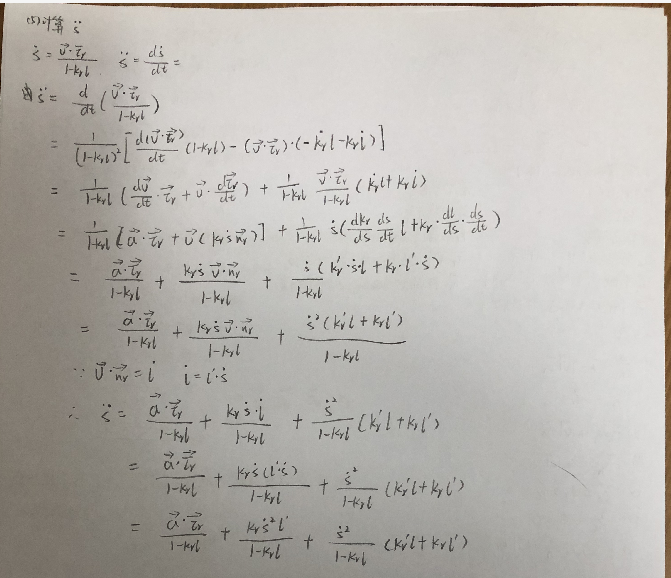 (5)计算 s̈
ṡ = v⃗·τ⃗r/(1-krl)   s̈ = dṡ/dt =
由 s̈ = d/dt (v⃗·τ⃗r/(1-krl))
= 1/(1-krl)² [d(v⃗·τ⃗r)/dt (1-krl) - (v⃗·τ⃗r)·(-k̇rl-krl̇)]
= 1/(1-krl) (dv⃗/dt·τ⃗r + v⃗·dτ⃗r/dt) + 1/(1-krl) v⃗·τ⃗r/(1-krl) (k̇rl+krl̇)
= 1/(1-krl) [a⃗·τ⃗r + v⃗(krṡn⃗r)] + 1/(1-krl) ṡ(dkr/ds ds/dt l + kr·dl/ds·ds/dt)
= a⃗·τ⃗r/(1-krl) + krṡv⃗·n⃗r/(1-krl) + ṡ(kr'·ṡl+kr·l'·ṡ)/(1-krl)
= a⃗·τ⃗r/(1-krl) + krṡv⃗·n⃗r/(1-krl) + ṡ²(kr'l+krl')/(1-krl)
∵ v⃗·n⃗r = l̇   l̇ = l'·ṡ
∴ s̈ = a⃗·τ⃗r/(1-krl) + krṡ·l̇/(1-krl) + ṡ²/(1-krl) (kr'l+krl')
= a⃗·τ⃗r/(1-krl) + krṡ(l'·ṡ)/(1-krl) + ṡ²/(1-krl) (kr'l+krl')
= a⃗·τ⃗r/(1-krl) + krṡ²l'/(1-krl) + ṡ²/(1-krl) (kr'l+krl')